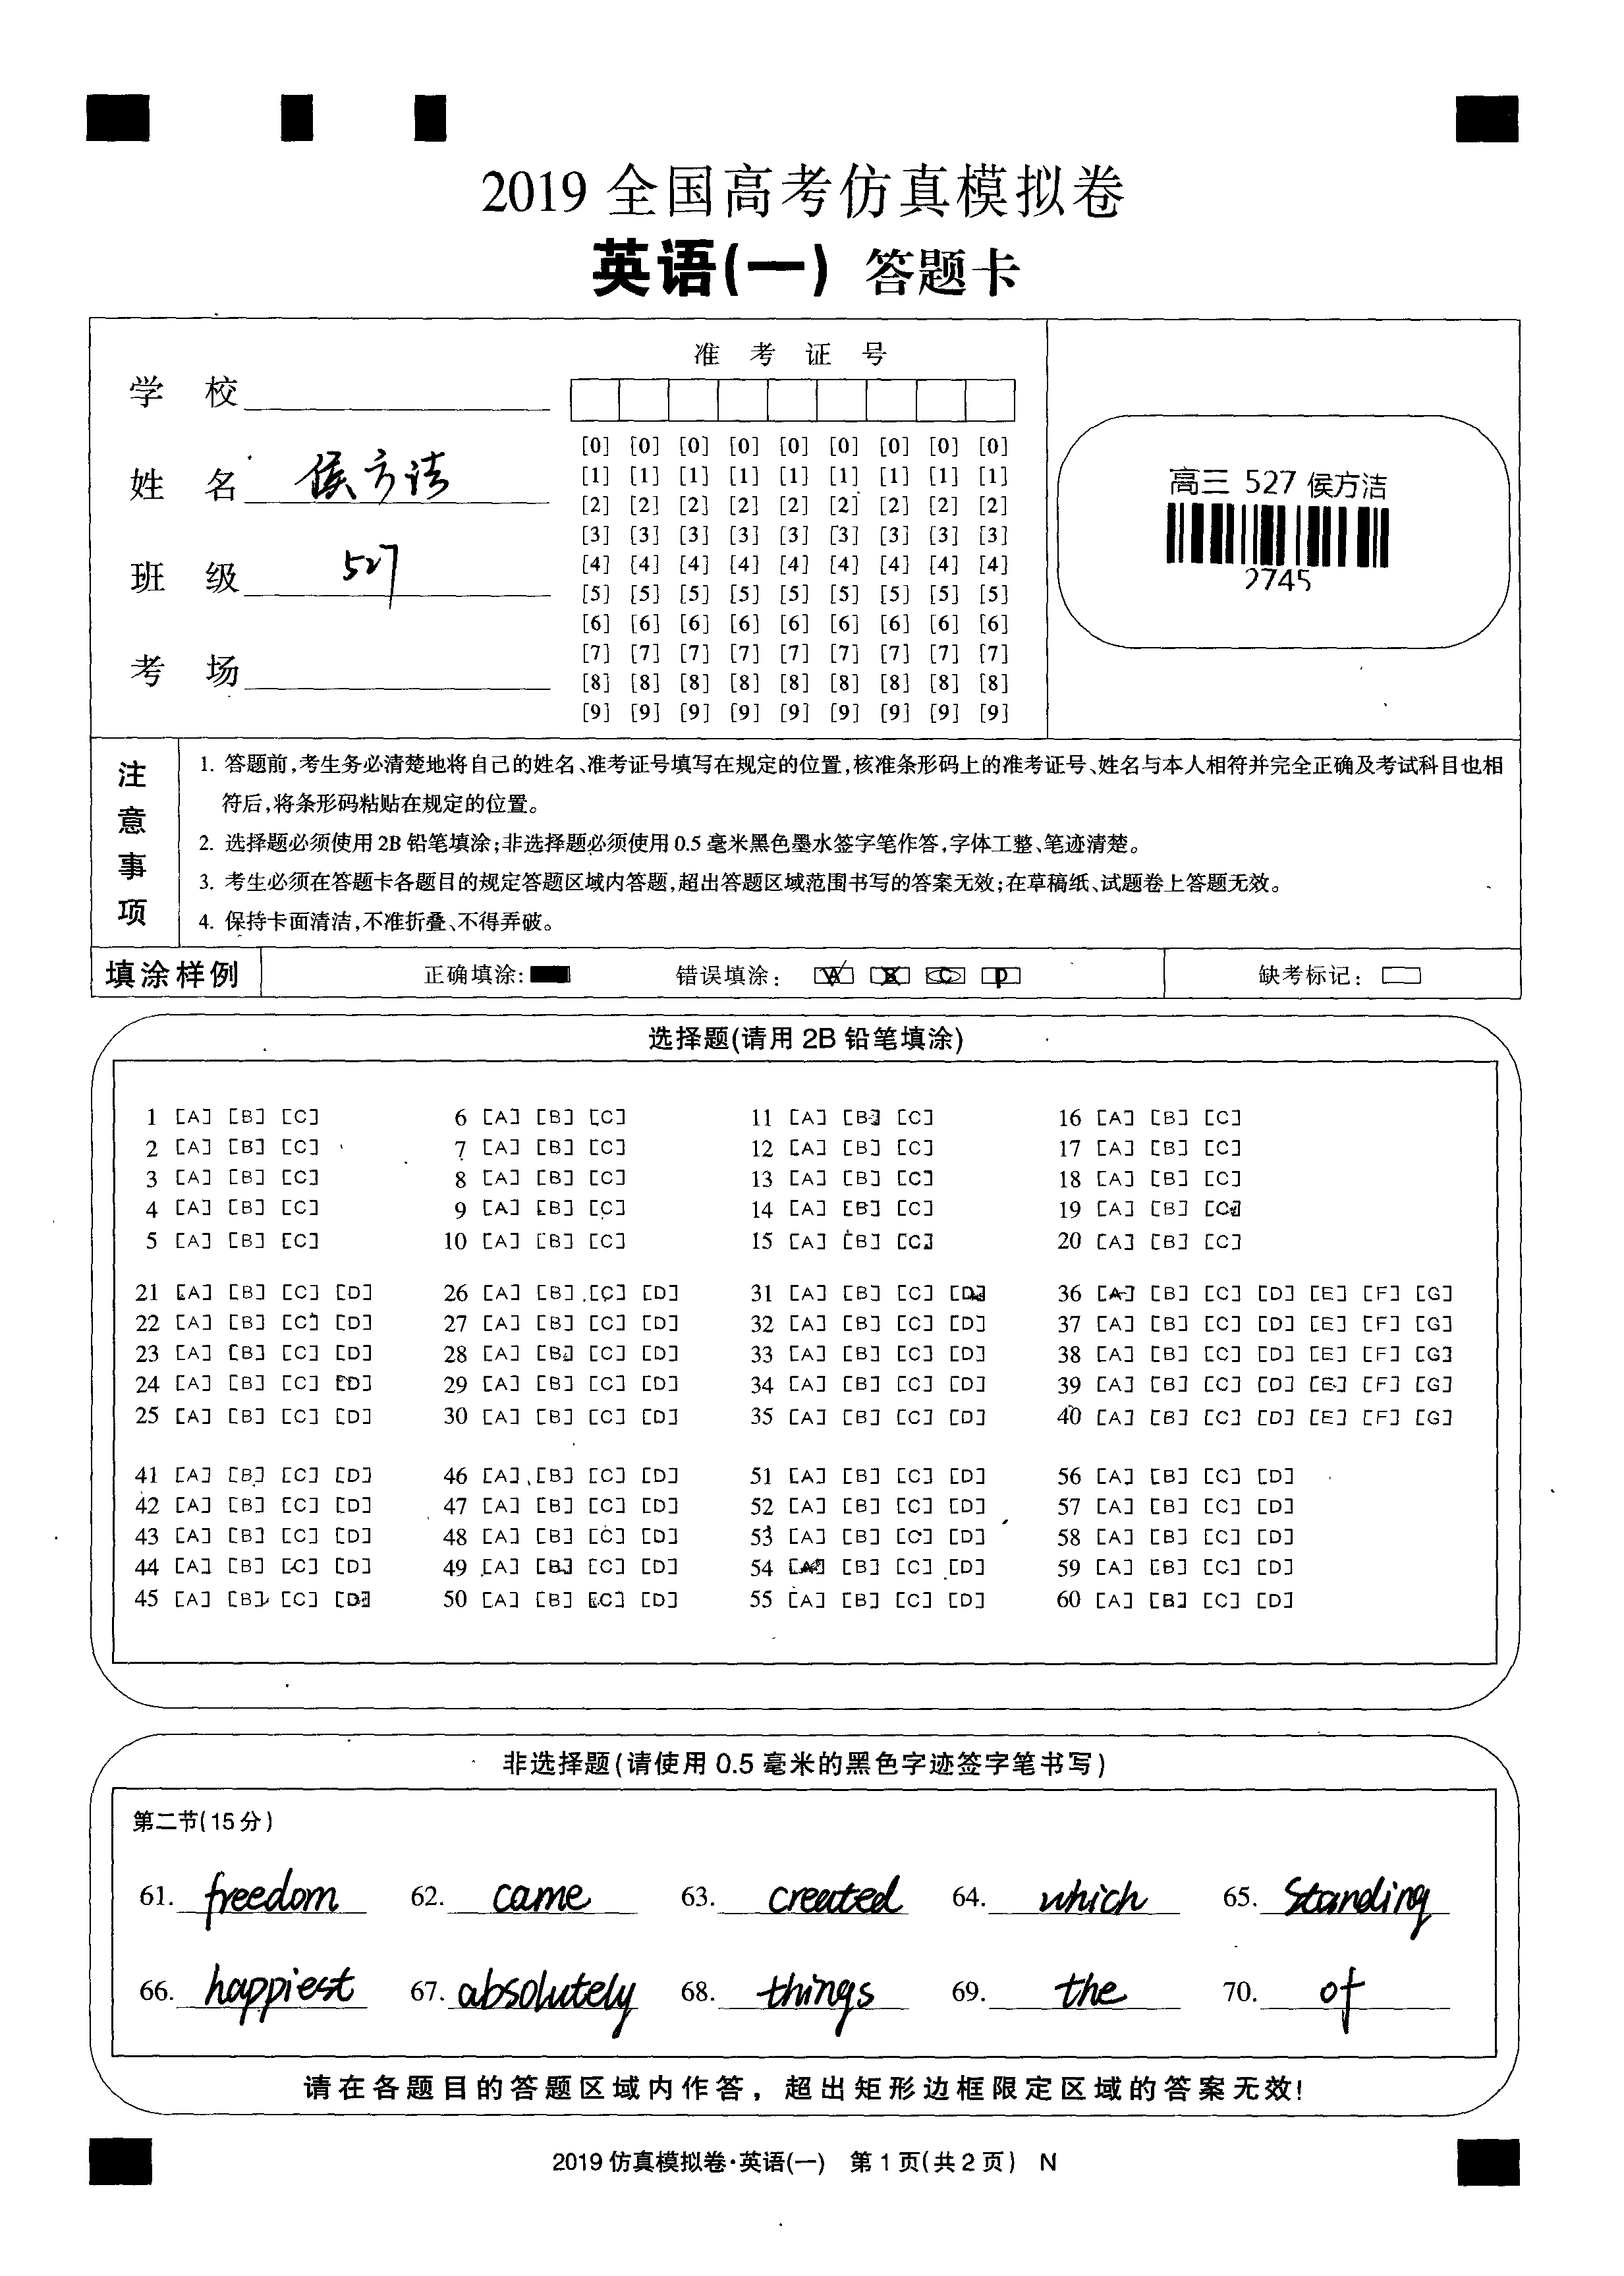 2019 全国高考仿真模拟卷
英语(一) 答题卡
准 考 证 号
学 校
姓 名 侯方洁
班 级 527
考 场
[0] [0] [0] [0] [0] [0] [0] [0] [0]
[1] [1] [1] [1] [1] [1] [1] [1] [1]
[2] [2] [2] [2] [2] [2] [2] [2] [2]
[3] [3] [3] [3] [3] [3] [3] [3] [3]
[4] [4] [4] [4] [4] [4] [4] [4] [4]
[5] [5] [5] [5] [5] [5] [5] [5] [5]
[6] [6] [6] [6] [6] [6] [6] [6] [6]
[7] [7] [7] [7] [7] [7] [7] [7] [7]
[8] [8] [8] [8] [8] [8] [8] [8] [8]
[9] [9] [9] [9] [9] [9] [9] [9] [9]
高三 527 侯方洁
2745
注意事项
1. 答题前,考生务必清楚地将自己的姓名、准考证号填写在规定的位置,核准条形码上的准考证号、姓名与本人相符并完全正确及考试科目也相
符后,将条形码粘贴在规定的位置。
2. 选择题必须使用2B铅笔填涂;非选择题必须使用0.5毫米黑色墨水签字笔作答,字体工整、笔迹清楚。
3. 考生必须在答题卡各题目的规定答题区域内答题,超出答题区域范围书写的答案无效;在草稿纸、试题卷上答题无效。
4. 保持卡面清洁,不准折叠、不得弄破。
填涂样例 正确填涂: 错误填涂: A B C D 缺考标记:
选择题(请用 2B 铅笔填涂)
1 [A] [B] [C] 6 [A] [B] [C] 11 [A] [B] [C] 16 [A] [B] [C]
2 [A] [B] [C] 7 [A] [B] [C] 12 [A] [B] [C] 17 [A] [B] [C]
3 [A] [B] [C] 8 [A] [B] [C] 13 [A] [B] [C] 18 [A] [B] [C]
4 [A] [B] [C] 9 [A] [B] [C] 14 [A] [B] [C] 19 [A] [B] [C]
5 [A] [B] [C] 10 [A] [B] [C] 15 [A] [B] [C] 20 [A] [B] [C]
21 [A] [B] [C] [D] 26 [A] [B] [C] [D] 31 [A] [B] [C] [D] 36 [A] [B] [C] [D] [E] [F] [G]
22 [A] [B] [C] [D] 27 [A] [B] [C] [D] 32 [A] [B] [C] [D] 37 [A] [B] [C] [D] [E] [F] [G]
23 [A] [B] [C] [D] 28 [A] [B] [C] [D] 33 [A] [B] [C] [D] 38 [A] [B] [C] [D] [E] [F] [G]
24 [A] [B] [C] [D] 29 [A] [B] [C] [D] 34 [A] [B] [C] [D] 39 [A] [B] [C] [D] [E] [F] [G]
25 [A] [B] [C] [D] 30 [A] [B] [C] [D] 35 [A] [B] [C] [D] 40 [A] [B] [C] [D] [E] [F] [G]
41 [A] [B] [C] [D] 46 [A] [B] [C] [D] 51 [A] [B] [C] [D] 56 [A] [B] [C] [D]
42 [A] [B] [C] [D] 47 [A] [B] [C] [D] 52 [A] [B] [C] [D] 57 [A] [B] [C] [D]
43 [A] [B] [C] [D] 48 [A] [B] [C] [D] 53 [A] [B] [C] [D] 58 [A] [B] [C] [D]
44 [A] [B] [C] [D] 49 [A] [B] [C] [D] 54 [A] [B] [C] [D] 59 [A] [B] [C] [D]
45 [A] [B] [C] [D] 50 [A] [B] [C] [D] 55 [A] [B] [C] [D] 60 [A] [B] [C] [D]
非选择题(请使用 0.5 毫米的黑色字迹签字笔书写)
第二节(15分)
61. freedom 62. came 63. created 64. which 65. standing
66. happiest 67. absolutely 68. things 69. the 70. of
请在各题目的答题区域内作答，超出矩形边框限定区域的答案无效!
2019 仿真模拟卷·英语(一) 第 1 页(共 2 页) N